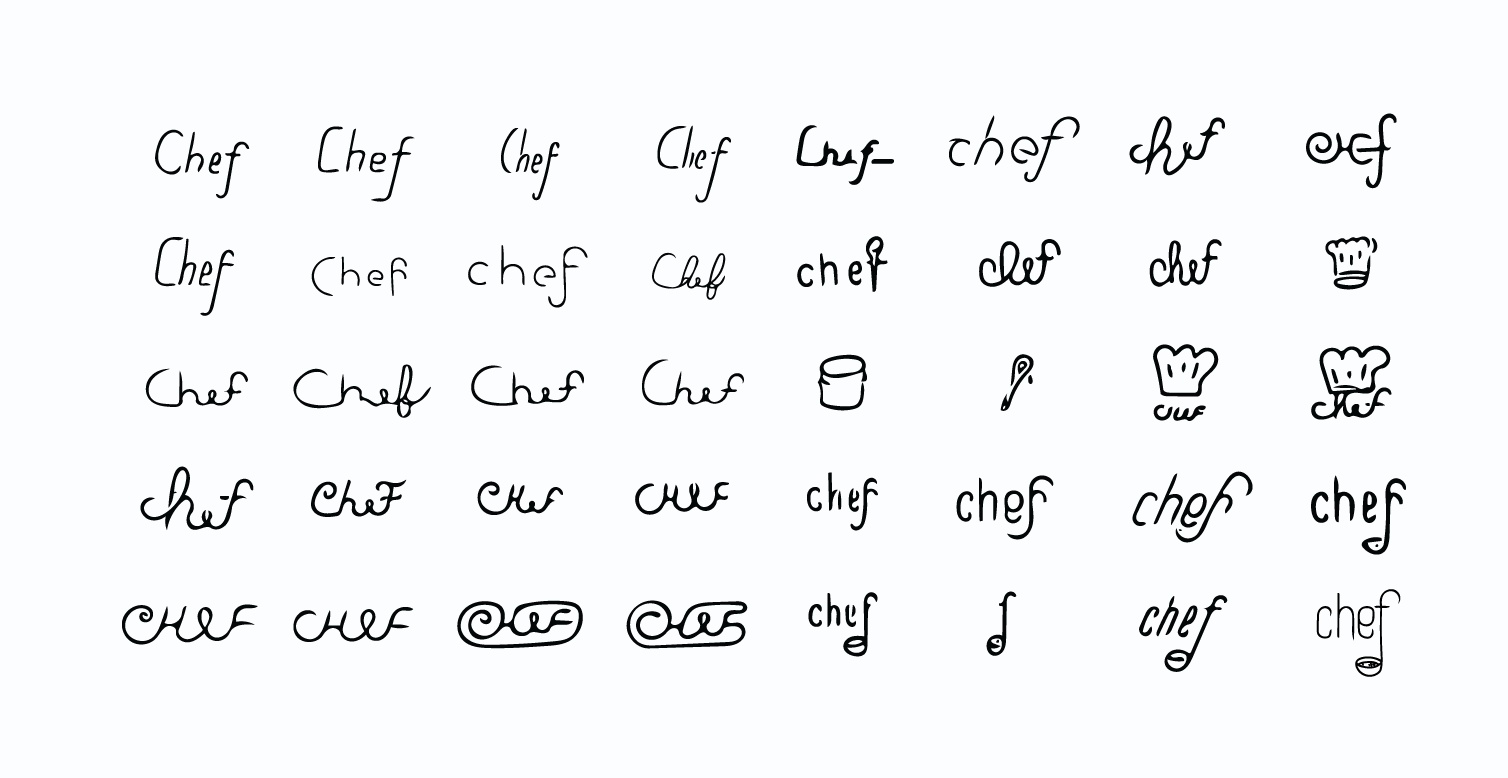 Chef Chef Chef Chef Chef chef chef
Chef Chef chef Chef chef chef chef
Chef Chef Chef Chef CHEF Chef
Chef CheF CHeF CHEF chef chef chef chef
CHEF CHEF CHEF CHEF chef chef chef